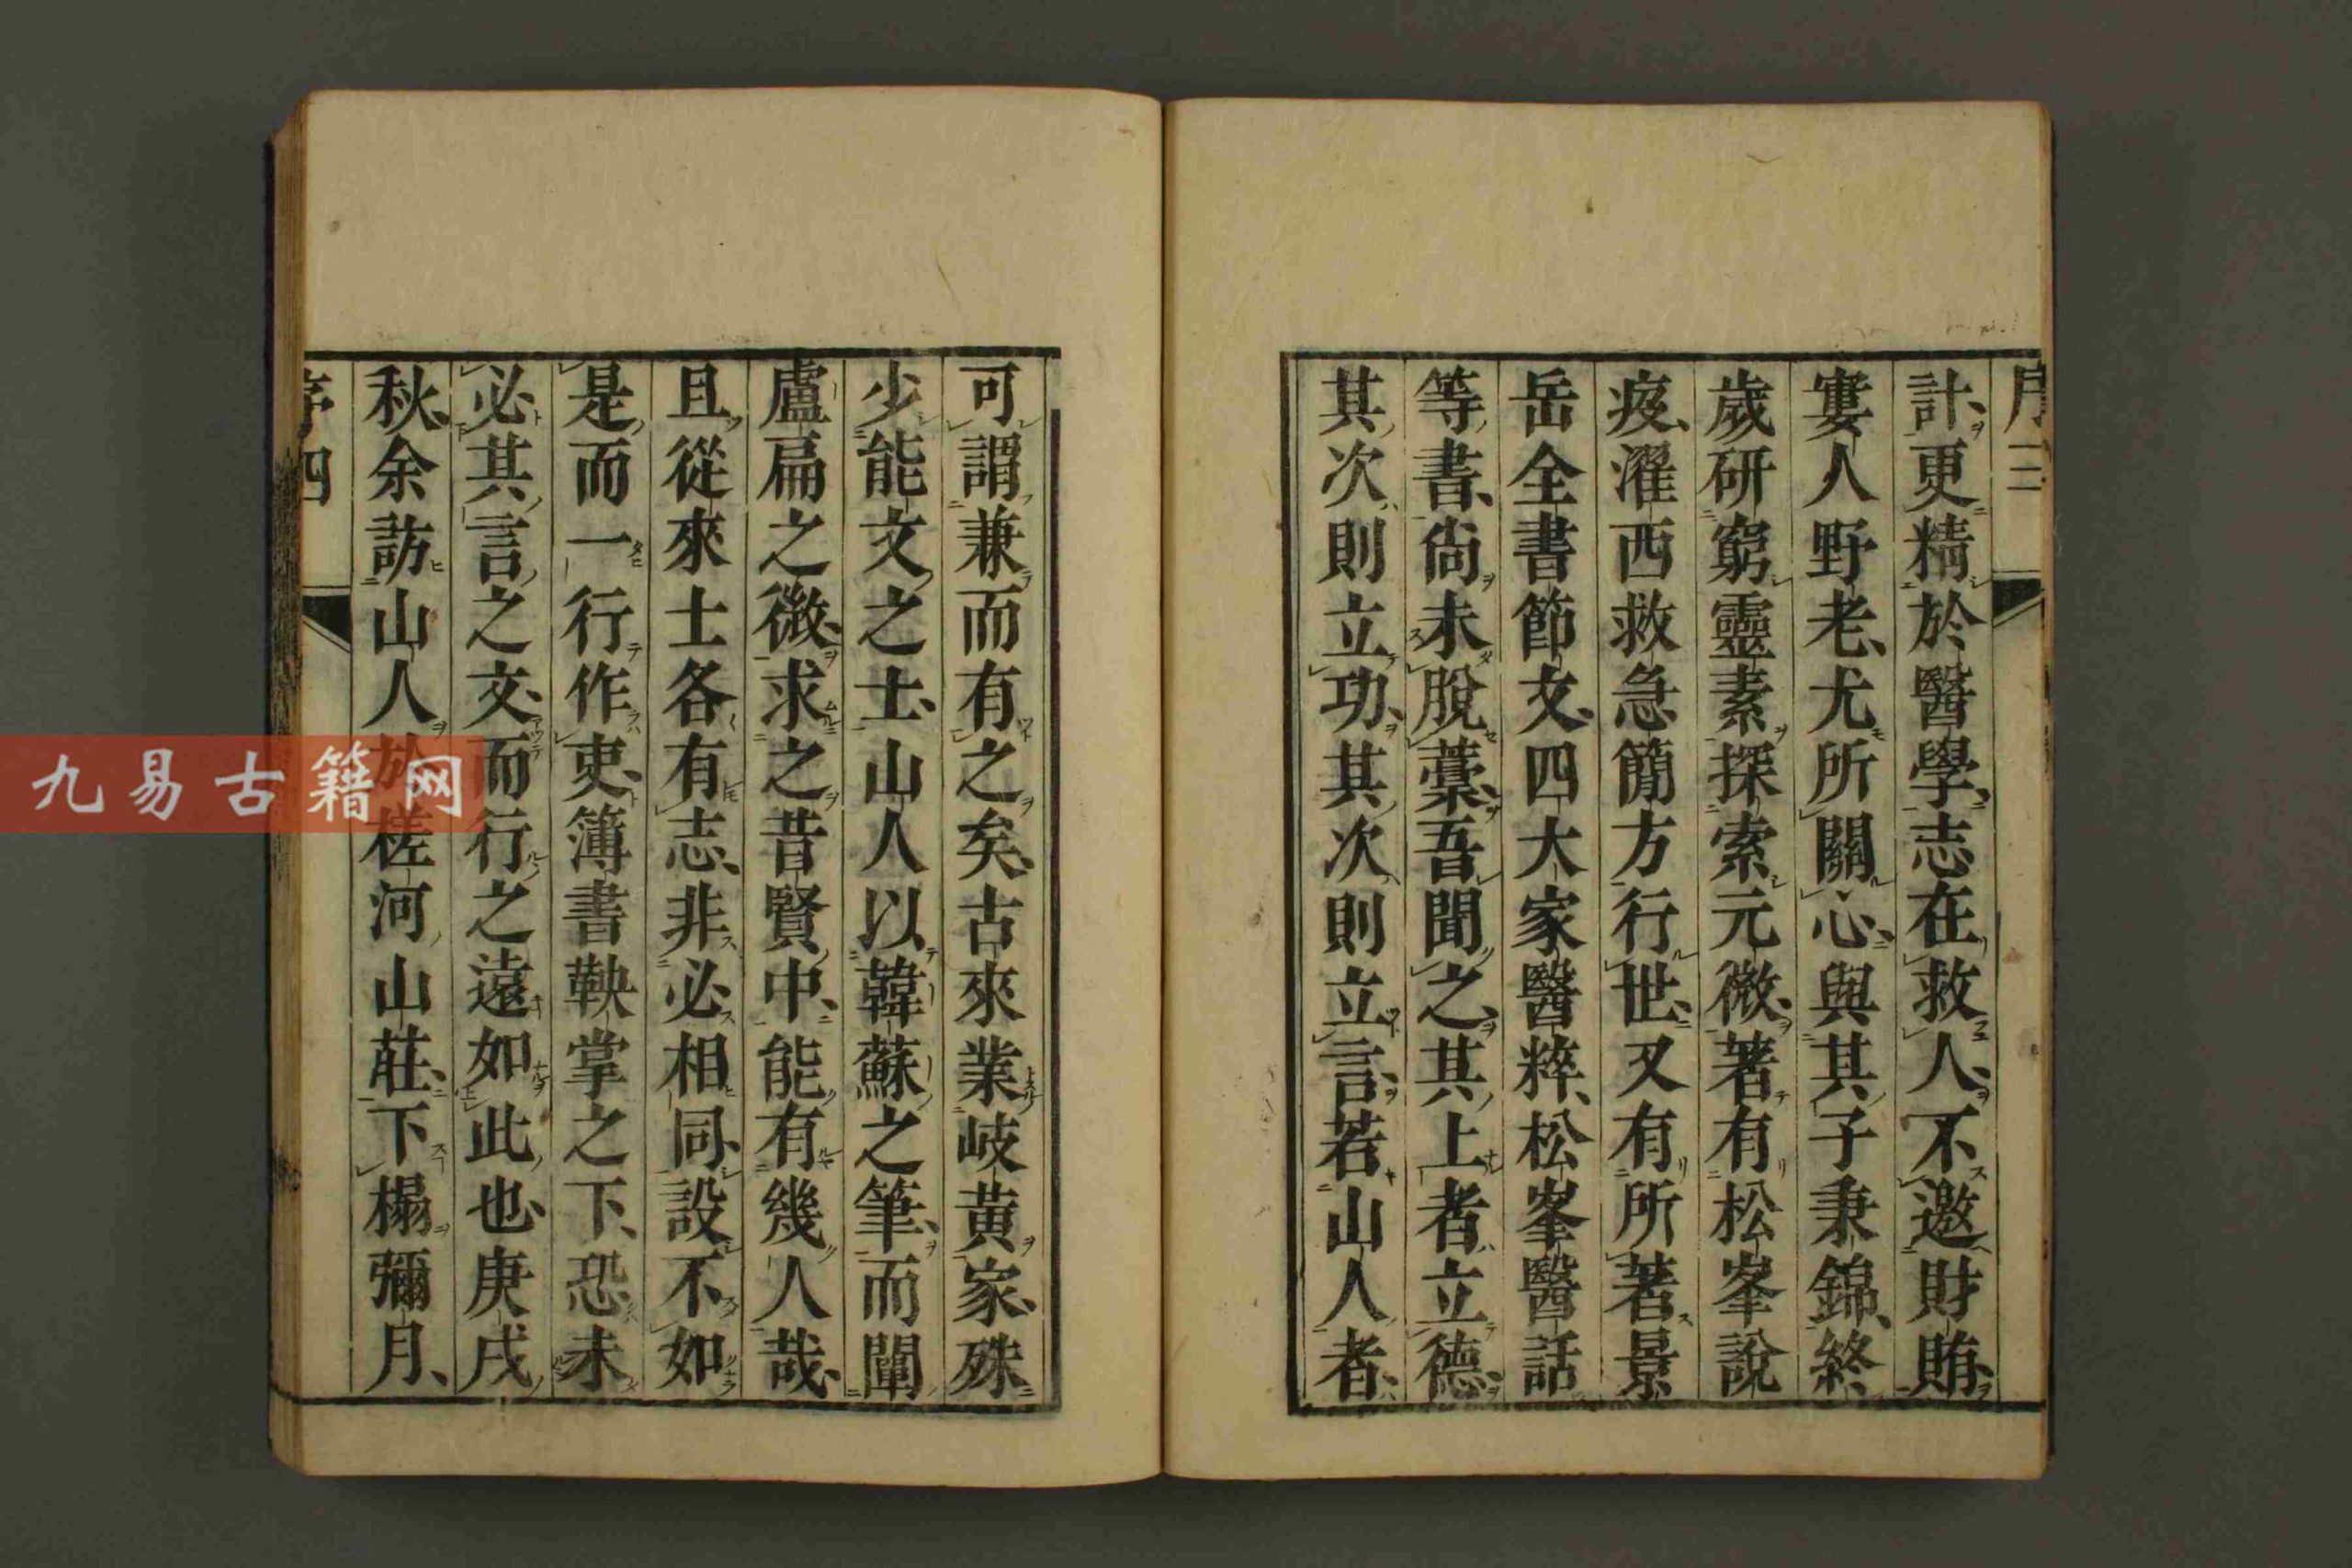 序三
計、更精於醫學、志在救人、不邀財賄、
寠人野老、尤所關心、與其子秉錦、終
歲研窮靈素、探索元微、著有松峯說
疫、濯西救急簡方行世、又有所著景
岳全書節文、四大家醫粹、松峯醫話
等書、尙未脫藁、吾聞之、其上者立德、
其次則立功、其次則立言、若山人者、
可謂兼而有之矣、古來業岐黃家、殊
少能文之士、山人以韓蘇之筆、而闡
盧扁之微、求之昔賢中、能有幾人哉、
且從來士各有志、非必相同、設不如
是而一行作吏、簿書鞅掌之下、恐未
必其言之文、而行之遠如此也、庚戌
秋、余訪山人於槎河山莊、下榻彌月、
序四
九易古籍网